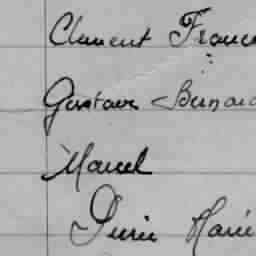 Clément Franco
Gustave Bernard
Marcel
Pierre Marie